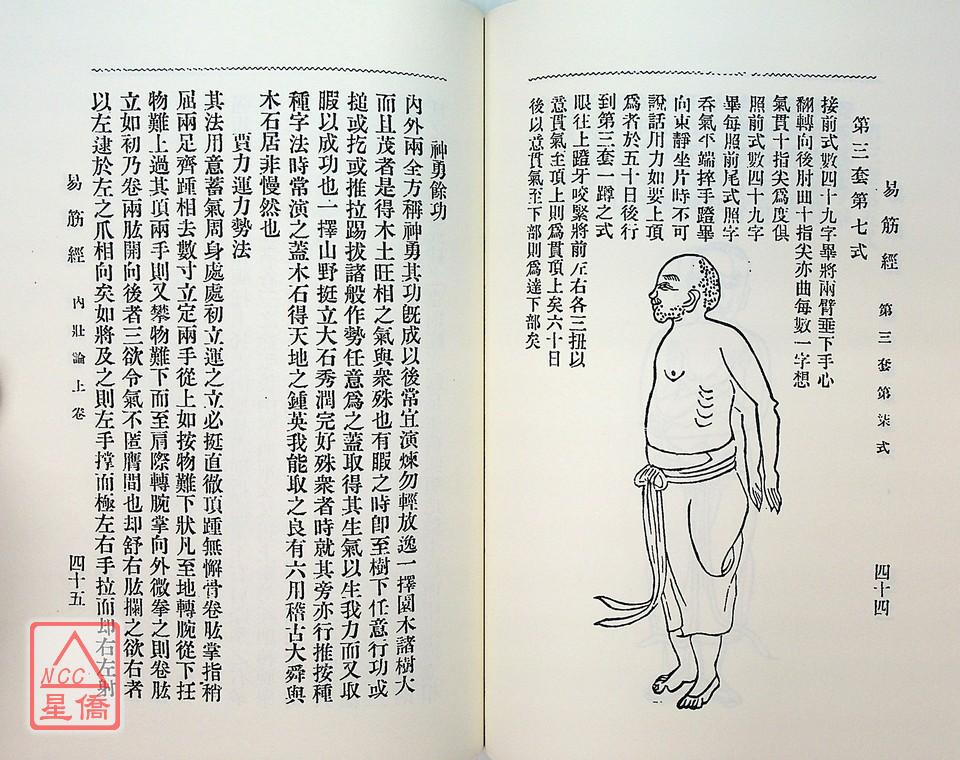 易筋經 第三套第柒式 四十四
第三套第七式
接前式數四十九字畢將兩臂垂下手心
翻轉向後肘曲十指尖亦曲每數一字想
氣貫十指尖爲度俱
照前式數四十九字
畢每照前尾式照字
呑氣平端捽手蹬畢
向東靜坐片時不可
說話用力如要上頂
爲者於五十日後行
到第三套一蹲之式
眼往上蹬牙咬緊將前左右各三扭以
意貫氣至頂上則爲貫頂上矣六十日
後以意貫氣至下部則爲達下部矣
神勇餘功
內外兩全方稱神勇其功旣成以後常宜演煉勿輕放逸一擇園木諸樹大
而且茂者是得木土旺相之氣與衆殊也有暇之時卽至樹下任意行功或
搥或扢或推拉踢拔諸般作勢任意爲之蓋取得其生氣以生我力而又取
暇以成功也一擇山野挺立大石秀潤完好殊衆者時就其旁亦行推按種
種字法時常演之蓋木石得天地之鍾英我能取之良有六用稽古大舜與
木石居非慢然也
賈力運力勢法
其法用意蓄氣周身處處初立運之立必挺直徹頂踵無懈骨卷肱掌指稍
屈兩足齊踵相去數寸立定兩手從上如按物難下狀凡至地轉腕從下抂
物難上過其頂兩手則又攀物難下而至肩際轉腕掌向外微拳之則卷肱
立如初乃卷兩肱開向後者三欲令氣不匿膺間也却舒右肱攔之欲右者
以左逮於左之爪相向矣如將及之則左手撑而極左右手拉而却右左射
易筋經 內壯論上卷 四十五
NCC
星僑